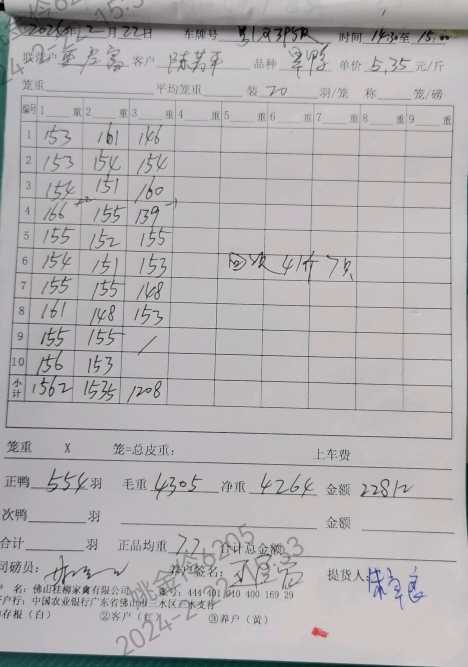 2024年2月22日 车牌号 时间 14:30至 15:00
客户 品种 单价 5.35 元/斤
笼重 平均笼重 装 20 羽/笼 称 笼/磅
编号 1 重 2 重 3 重 4 重 5 重 6 重 7 重 8 重 9 重
1 153 161 146
2 153 154 154
3 154 151 160
4 166 155 139
5 155 152 155
6 154 151 153 回次 41斤 7只
7 155 155 148
8 161 148 153
9 155 155 /
10 156 153
小计 1562 1535 1208
笼重 X 笼=总皮重: 上车费
正鸭 554 羽 毛重 4305 净重 4264 金额 22812
次鸭 羽 金额
合计 羽 正品均重 7.7 合计总金额
司磅员: 签名: 提货人:
名: 佛山桂柳家禽有限公司 账号: 444 401 040 400 169 29
户行: 中国农业银行广东省佛山市三水区 支行
存根(白) ②客户(红) ③养户(黄)